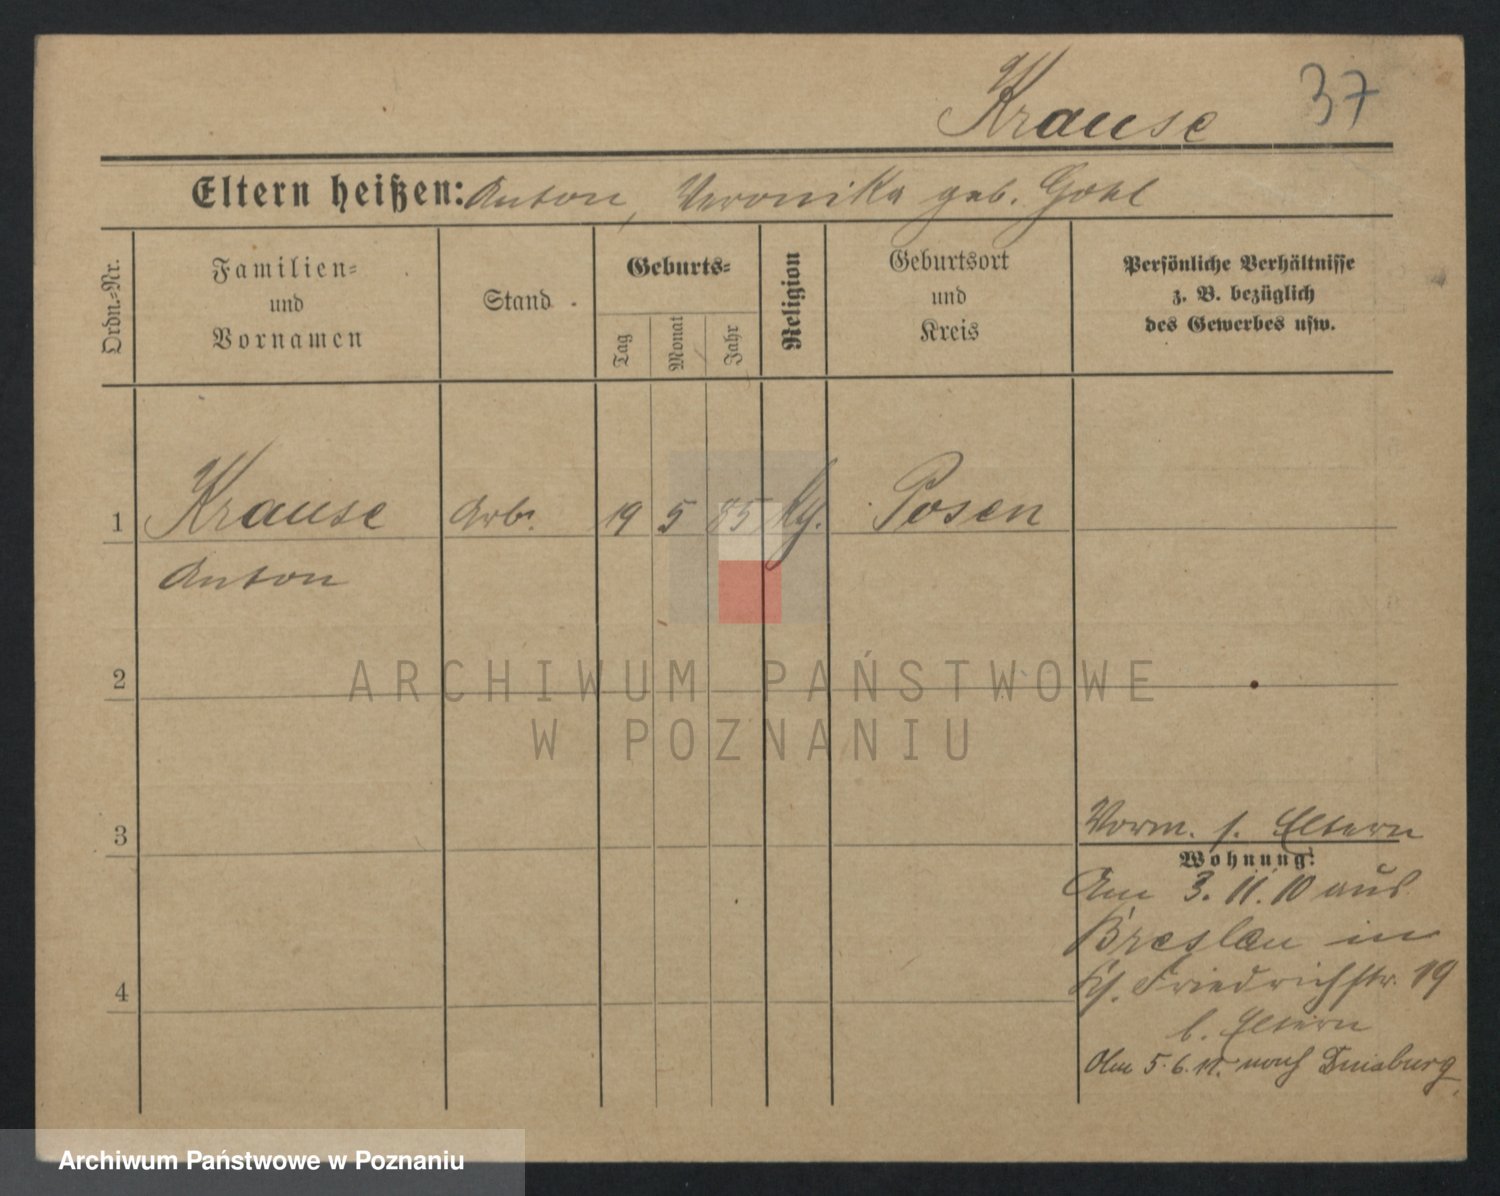 Krause 37
Eltern heißen: Anton, Veronika geb. Gohl
Ordn.-Nr.
Familien-
und
Vornamen
Stand
Geburts-
Tag
Monat
Jahr
Religion
Geburtsort
und
Kreis
Persönliche Verhältnisse
z. B. bezüglich
des Gewerbes usw.
1 Krause Arb. 19 5 85 Posen
Anton
2
3
4
Vorm. s. Eltern
Wohnung:
Am 3.11.10 aus
Breslau in
Friedrichstr. 19
b. Eltern
Am 5.6.11. nach Duisburg
ARCHIWUM PAŃSTWOWE
W POZNANIU
Archiwum Państwowe w Poznaniu